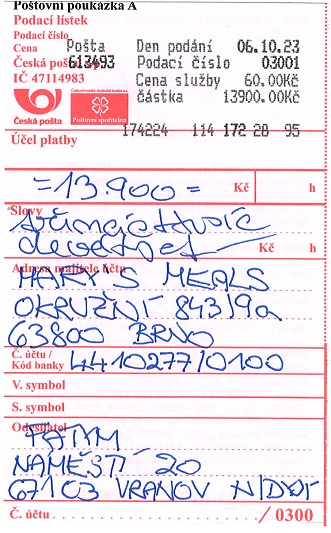 Poštovní poukázka A
Podací lístek
Podací číslo
Cena Pošta Den podání 06.10.23
Česká pošta 613493 Podací číslo 03001
IČ 47114983 Cena služby 60.00Kč
částka 13900.00Kč
Česká pošta Poštovní spořitelna
174224 114 172 28 95
Účel platby
=13.900= Kč h
Slovy
třinácttisíc
devětset Kč h
Adresa majitele účtu
MARY'S MEALS
OKRUŽNÍ 843/9a
63800 BRNO
Č. účtu /
Kód banky 4410277/0100
V. symbol
S. symbol
Odesílatel
FATYM
NÁMĚSTÍ 20
67103 VRANOV N/DYJÍ
Č. účtu / 0300